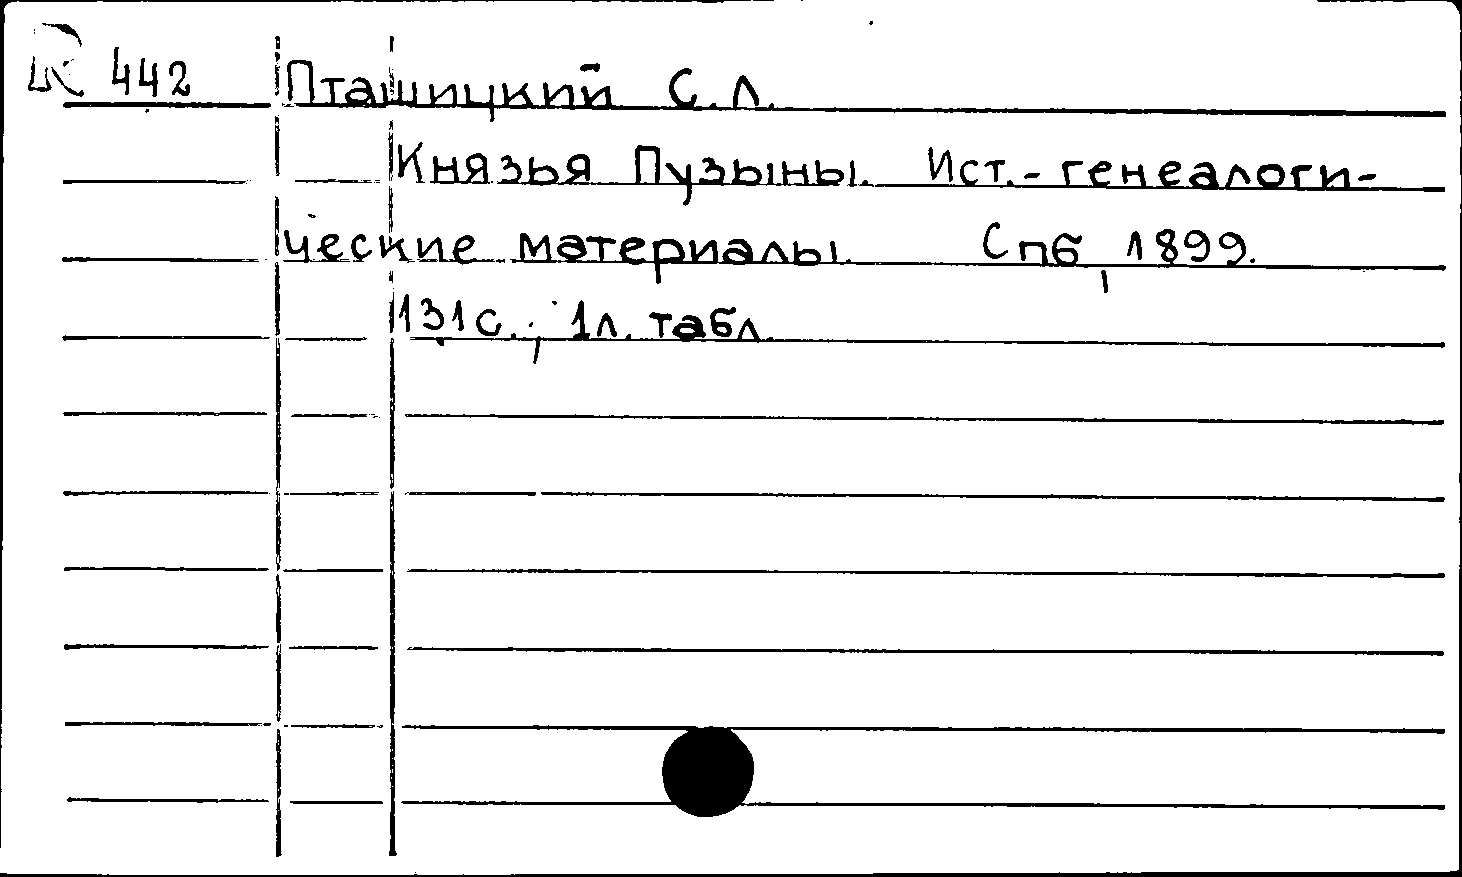 R 442 Пташицкий С.Л.
Князья Пузыны. Ист.-генеалоги-
ческие материалы. Спб, 1899.
131с.; 1л. табл.